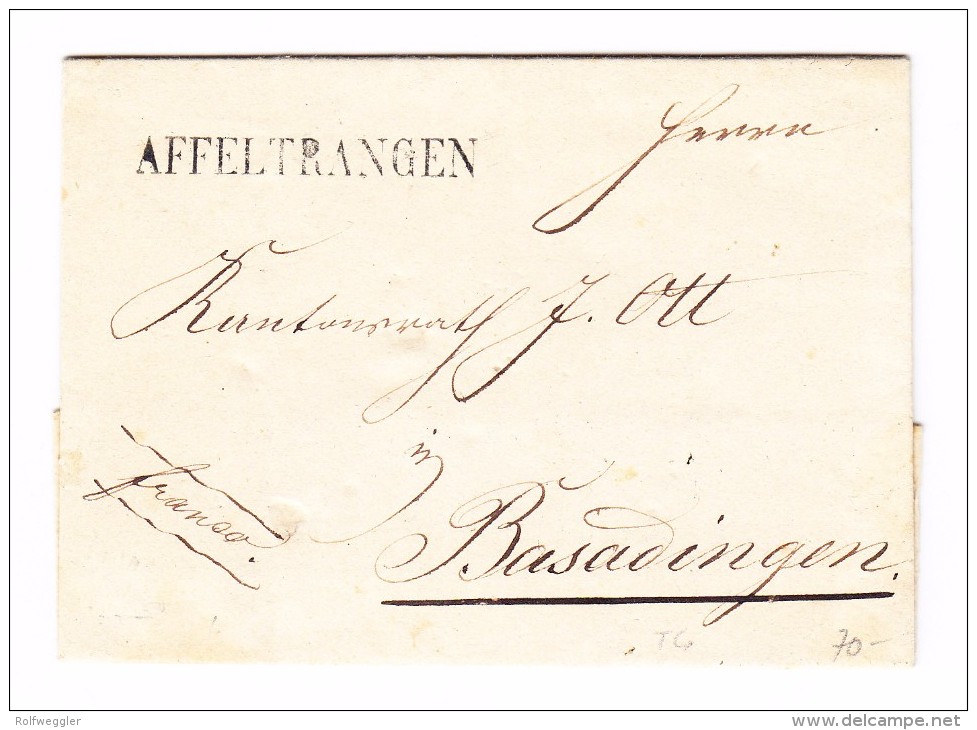 AFFELTRANGEN
Herrn
Kantonsrath J. Ott
in
franco.
Basadingen.
TG
70-
Rolfweggler
www.delcampe.net